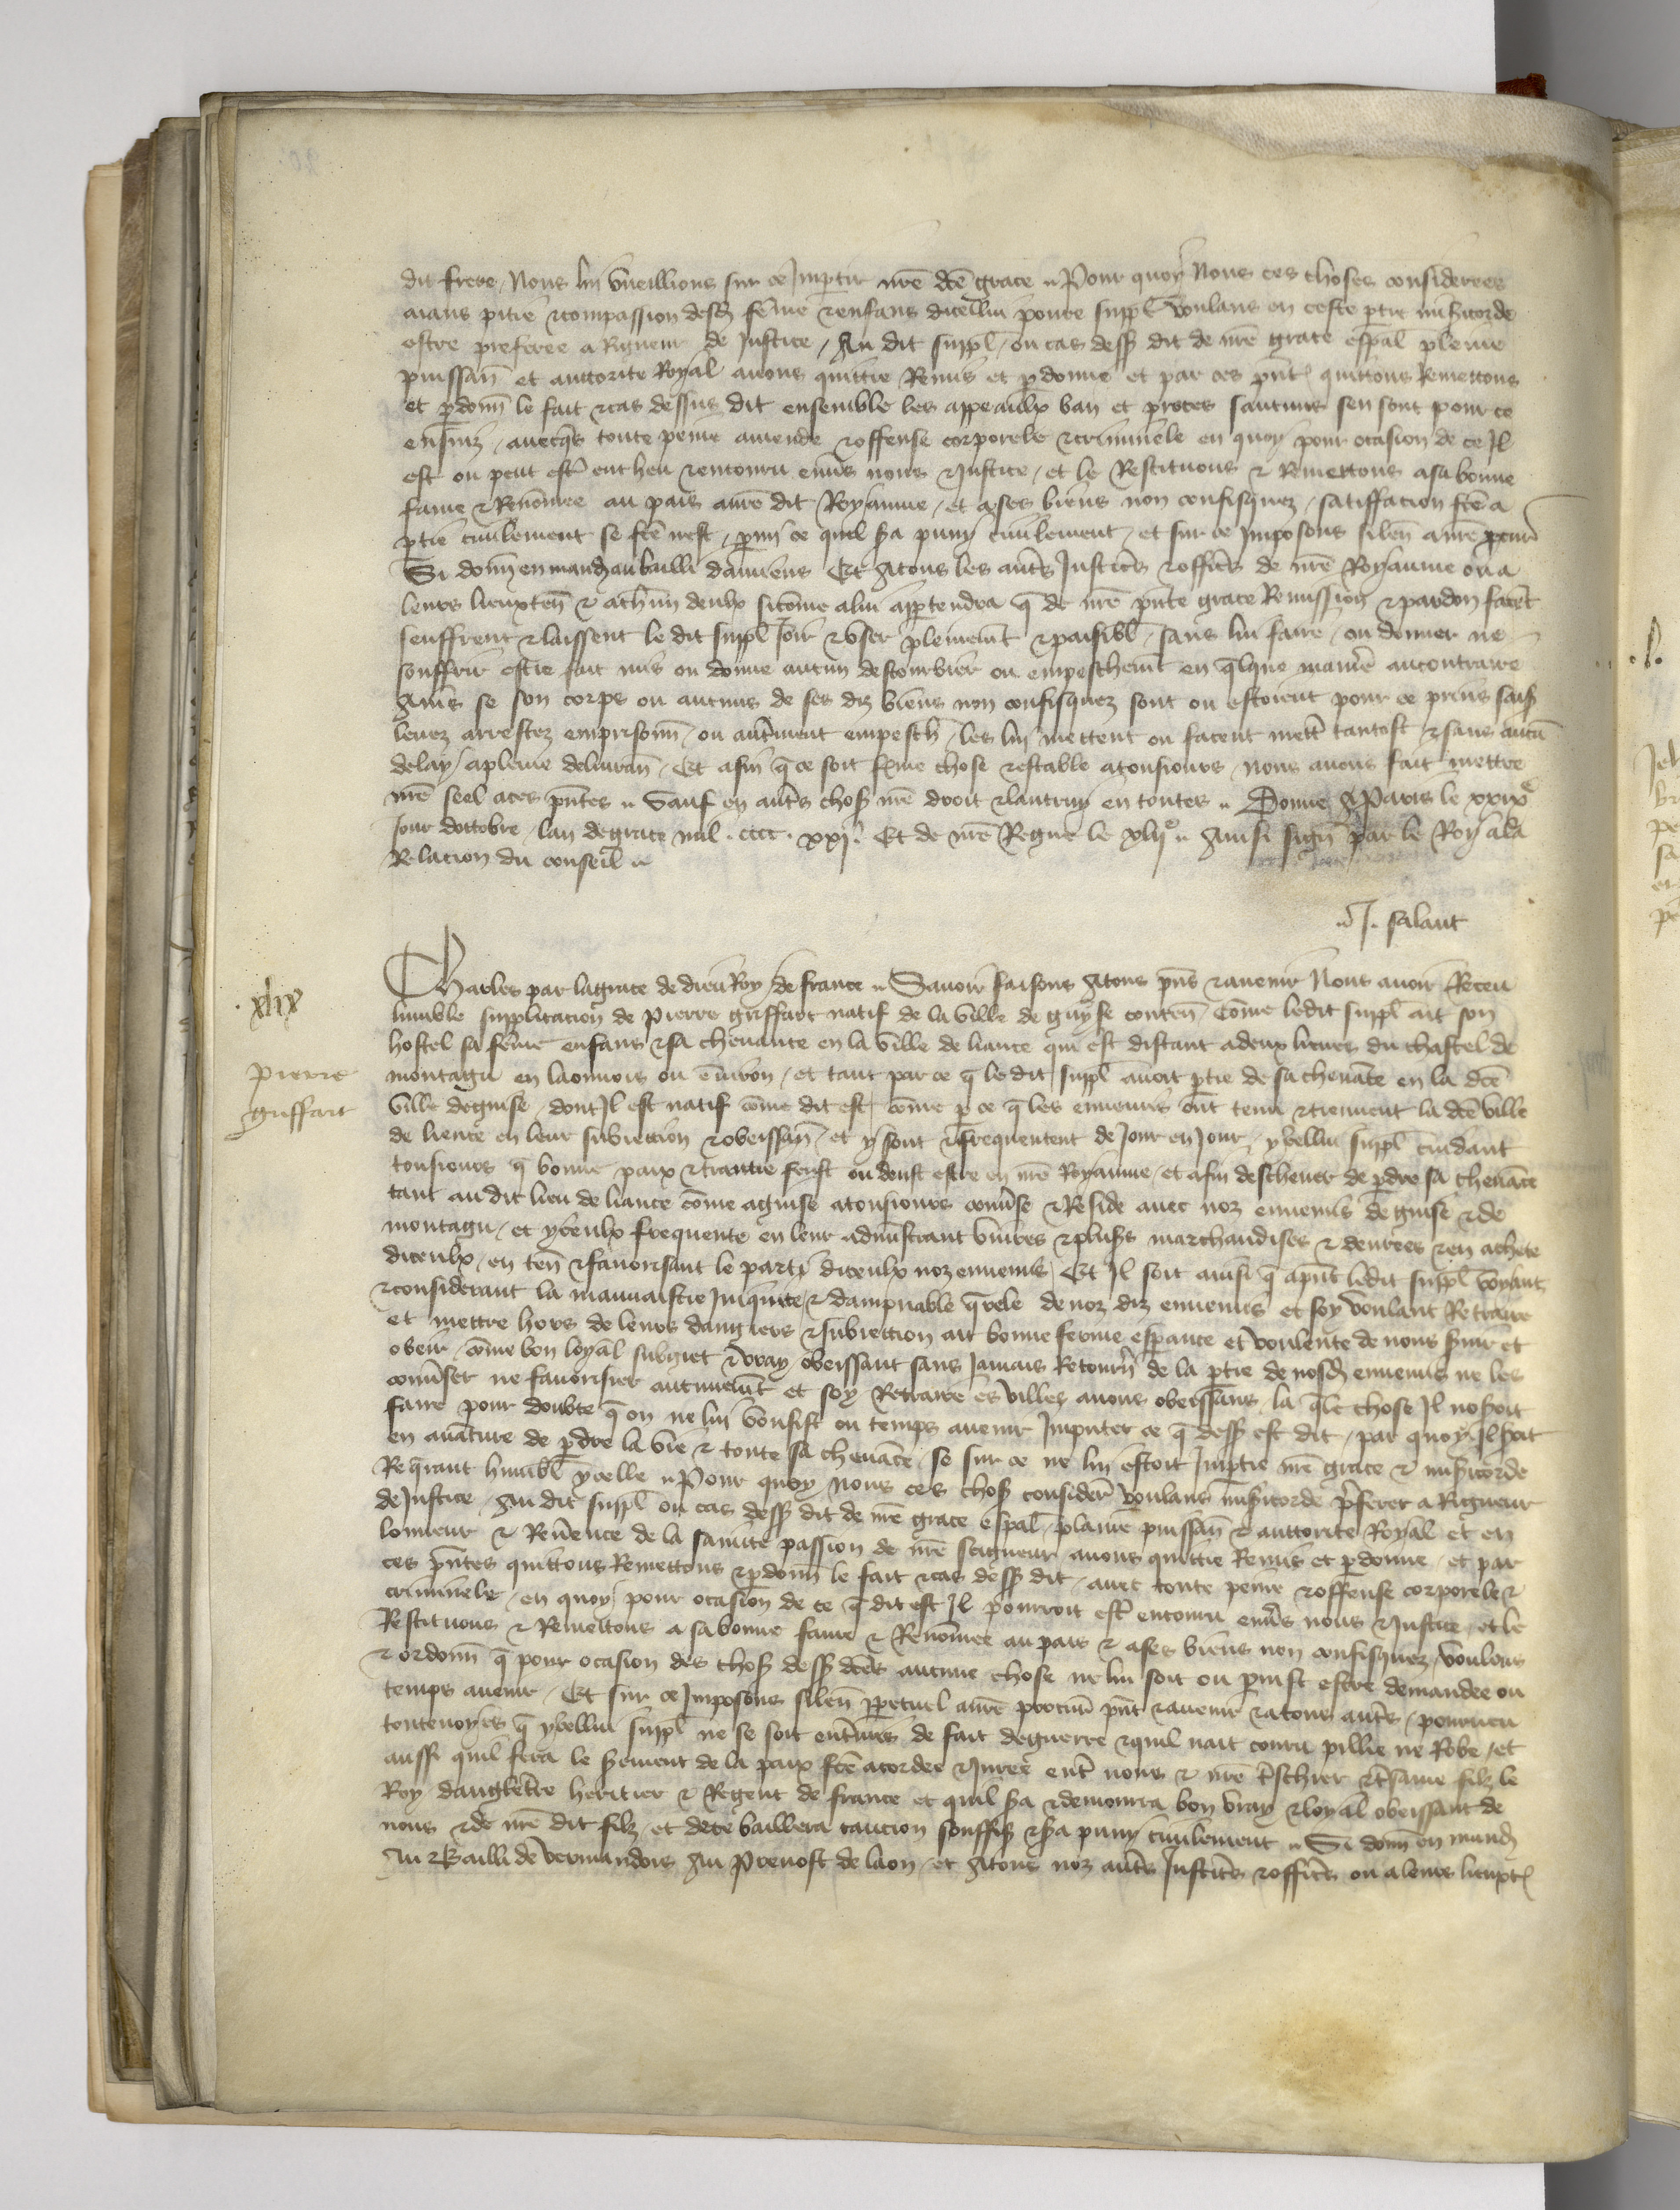 dit frere, Nous lui vueillions sur ce Impartir nr̃e dc̃e grace .. Pour quoy Nous ces choses considerees
aians pitie & compassion desd. fẽme & enfans dicellui poure suppl. voulans en ceste ptie misicorde
estre preferee a Rigueur de Justice, Au dit suppl. ou cas dess dit de nr̃e grace esp̃al pleine
puissañ et auctorite Royal auons quictie Remis et pdonne et par ces pñt. quictons Remettons
et pdonñ le fait & cas dessus dit ensemble les appeaulx ban et proces saucuns sen sont pour ce
ensuiz, auecq̃s toute peine amende & offense corporele & criminele en quoy pour ocasion de ce Il
est ou peut estr̃ encheu & encouru enũs nous & Justice, et le Restituons & Remettons a sa bonne
fame & Renõmee au pais a nr̃e dit Royaume, et a ses biens non confisquez, satiffacion fc̃e a
ptie ciuilement se fc̃e nest, pmi ce quil sa puny ciuilement, et sur ce Imposons sileñ a nr̃e procur̃
Si donñ en mand. au bailli damiens Et Atous les aut̃s Justic̃s & offic̃s de nr̃e Royaume ou a
leurs lieuxteñ & achũn deulx sicõme a lui apptendra q̃ de nr̃e pñte grace Remission & pardon facẽt
seuffrent & laissent le dit suppl. Joir & vser plemem̃t & paisibl. sans lui faire, ou donner ne
souffrir estre fait mis ou donne aucun destourbier ou empeschem̃t en q̃lque manier̃ aucontraire
Ains se son corps ou aucuns de ses diz biens non confisquez sont ou estoient pour ce prins saiss
leuez arrestez emprisonñ, ou aut̃ment empesch. les lui mettent ou facent mett̃ tantost & sans aucũ
delay, apleine deliurañ, Et afin q̃ ce soit f̃me chose & estable atousiours, Nous auons fait mettre
nr̃e seel a ces pñtes .. Sauf en aut̃s chos. nr̃e droit & lautruy en toutes .. Donne A Paris le xxixe
Jour doctobre, lan de grace mil. cccc. xxj. Et de nr̃e Regne le xlije .. Ainsi signe par le Roy a la
Relacion du conseil ..
.J. salaut
Charles par la grace de dieu Roy de france .. Sauoir faisons Atous pñs & auenir Nous auoir Receu
lumble supplicacion de Pierre griffart natif de la ville de guyse conteñ, Cõme ledit suppl. ait son
hostel sa fẽme enfans & sa cheuance en la ville de liance qui est distant a deux lieues du chastel de
montagu en laonnois ou enuiron, et tant par ce q̃ le dit suppl. auoit ptie de sa cheuãce en la dc̃e
ville de guise, dont Il est natif cõme dit est, cõme p ce q̃ les ennemis ont tenu & tiennent la dc̃e ville
de liance en leur subiection & obeissañ, et y sont & frequentent de Jour en Jour, ycellui suppl. cuidant
tousiours q̃ bonne paix & traictie feust ou deust estre en nr̃e Royaume, et afin descheuer de pdre sa cheuãce
tant au dit lieu de liance cõme a guise atousiours conũse & Reside auec noz ennemis de guise & de
montagu, et yceulx frequente en leur admĩstrant viures & plus̃s marchandises & denrees & en achete
diceulx, en teñ & fauorisant le party diceulx noz ennemis, Et Il soit ainsi q̃ apñt ledit suppl. voyant
& considerant la mauuaistie Iniquite & dampnable q̃rele de noz diz ennemis et soy voulant Retraire
et mettre hors de leurs dangiers & subiection ait bonne ferme espance et voulente de nous s̃uir et
obeir, cõme bon loyal subgiet & vray obeissant sans Jamais Retourñ de la ptie de nosd. ennemis ne les
conũser ne fauorisier aucunem̃t et soy Retraire es villes a nous obeissans, la q̃le chose Il noseroit
faire pour doubte q̃ on ne lui vousist ou temps auenir Imputer ce q̃ dess est dit, par quoy Il s̃oit
en auãture de pdre la vie & toute sa cheuãce, se sur ce ne lui estoit Imptie nr̃e grace & misicorde
Req̃rant humbl. ycelle .. Pour quoy, Nous ces chos. consider̃ voulans misicorde p̃ferer a Rigueur
de Justice, Au dit suppl. ou cas dess dit de nr̃e grace esp̃al, plaine puissañ & auctorite Royal et en
lonneur & Reũence de la sainte passion de nr̃e seigneur auons quictie Remis et pdonne, et par
ces pñtes quictons Remettons & pdonñ le fait & cas dess dit, auec toute peine & offense corporele &
criminele, en quoy pour ocasion de ce q̃ dit est Il pourroit estr̃ encouru enũs nous & Justice, et le
Restituons & Remettons a sa bonne fame & Renõmee au pais & a ses biens non confisquez, voulons
& ordonñ q̃ pour ocasion des chos. dess dc̃es aucune chose ne lui soit ou puist estre demandee ou
temps auenir, Et sur ce Imposons sileñ ppetuel a nr̃e procur̃ pñt & auenir & a tous aut̃s, pourueu
touteuoyes q̃ ycellui suppl. ne se soit entmis de fait de guerre & quil nait couru pillie ne Robe, et
aussi quil fera le s̃ement de la paix fc̃e acordee & Juree ent̃ nous & nr̃e t̃schier & t̃same filz le
Roy dangleterre heritier & Regent de france et quil s̃a & demourra bon vray & loyal obeissant de
nous & de nr̃e dit filz, et de ce baillera caucion souffis. & s̃a puny ciuilement .. Si donñ en mand.
Au Bailli de vermandois Au Preuost de laon, et Atous noz aut̃s Justic̃s & offic̃s ou a leurs lieuxt.
. xlix
Pierre
griffart